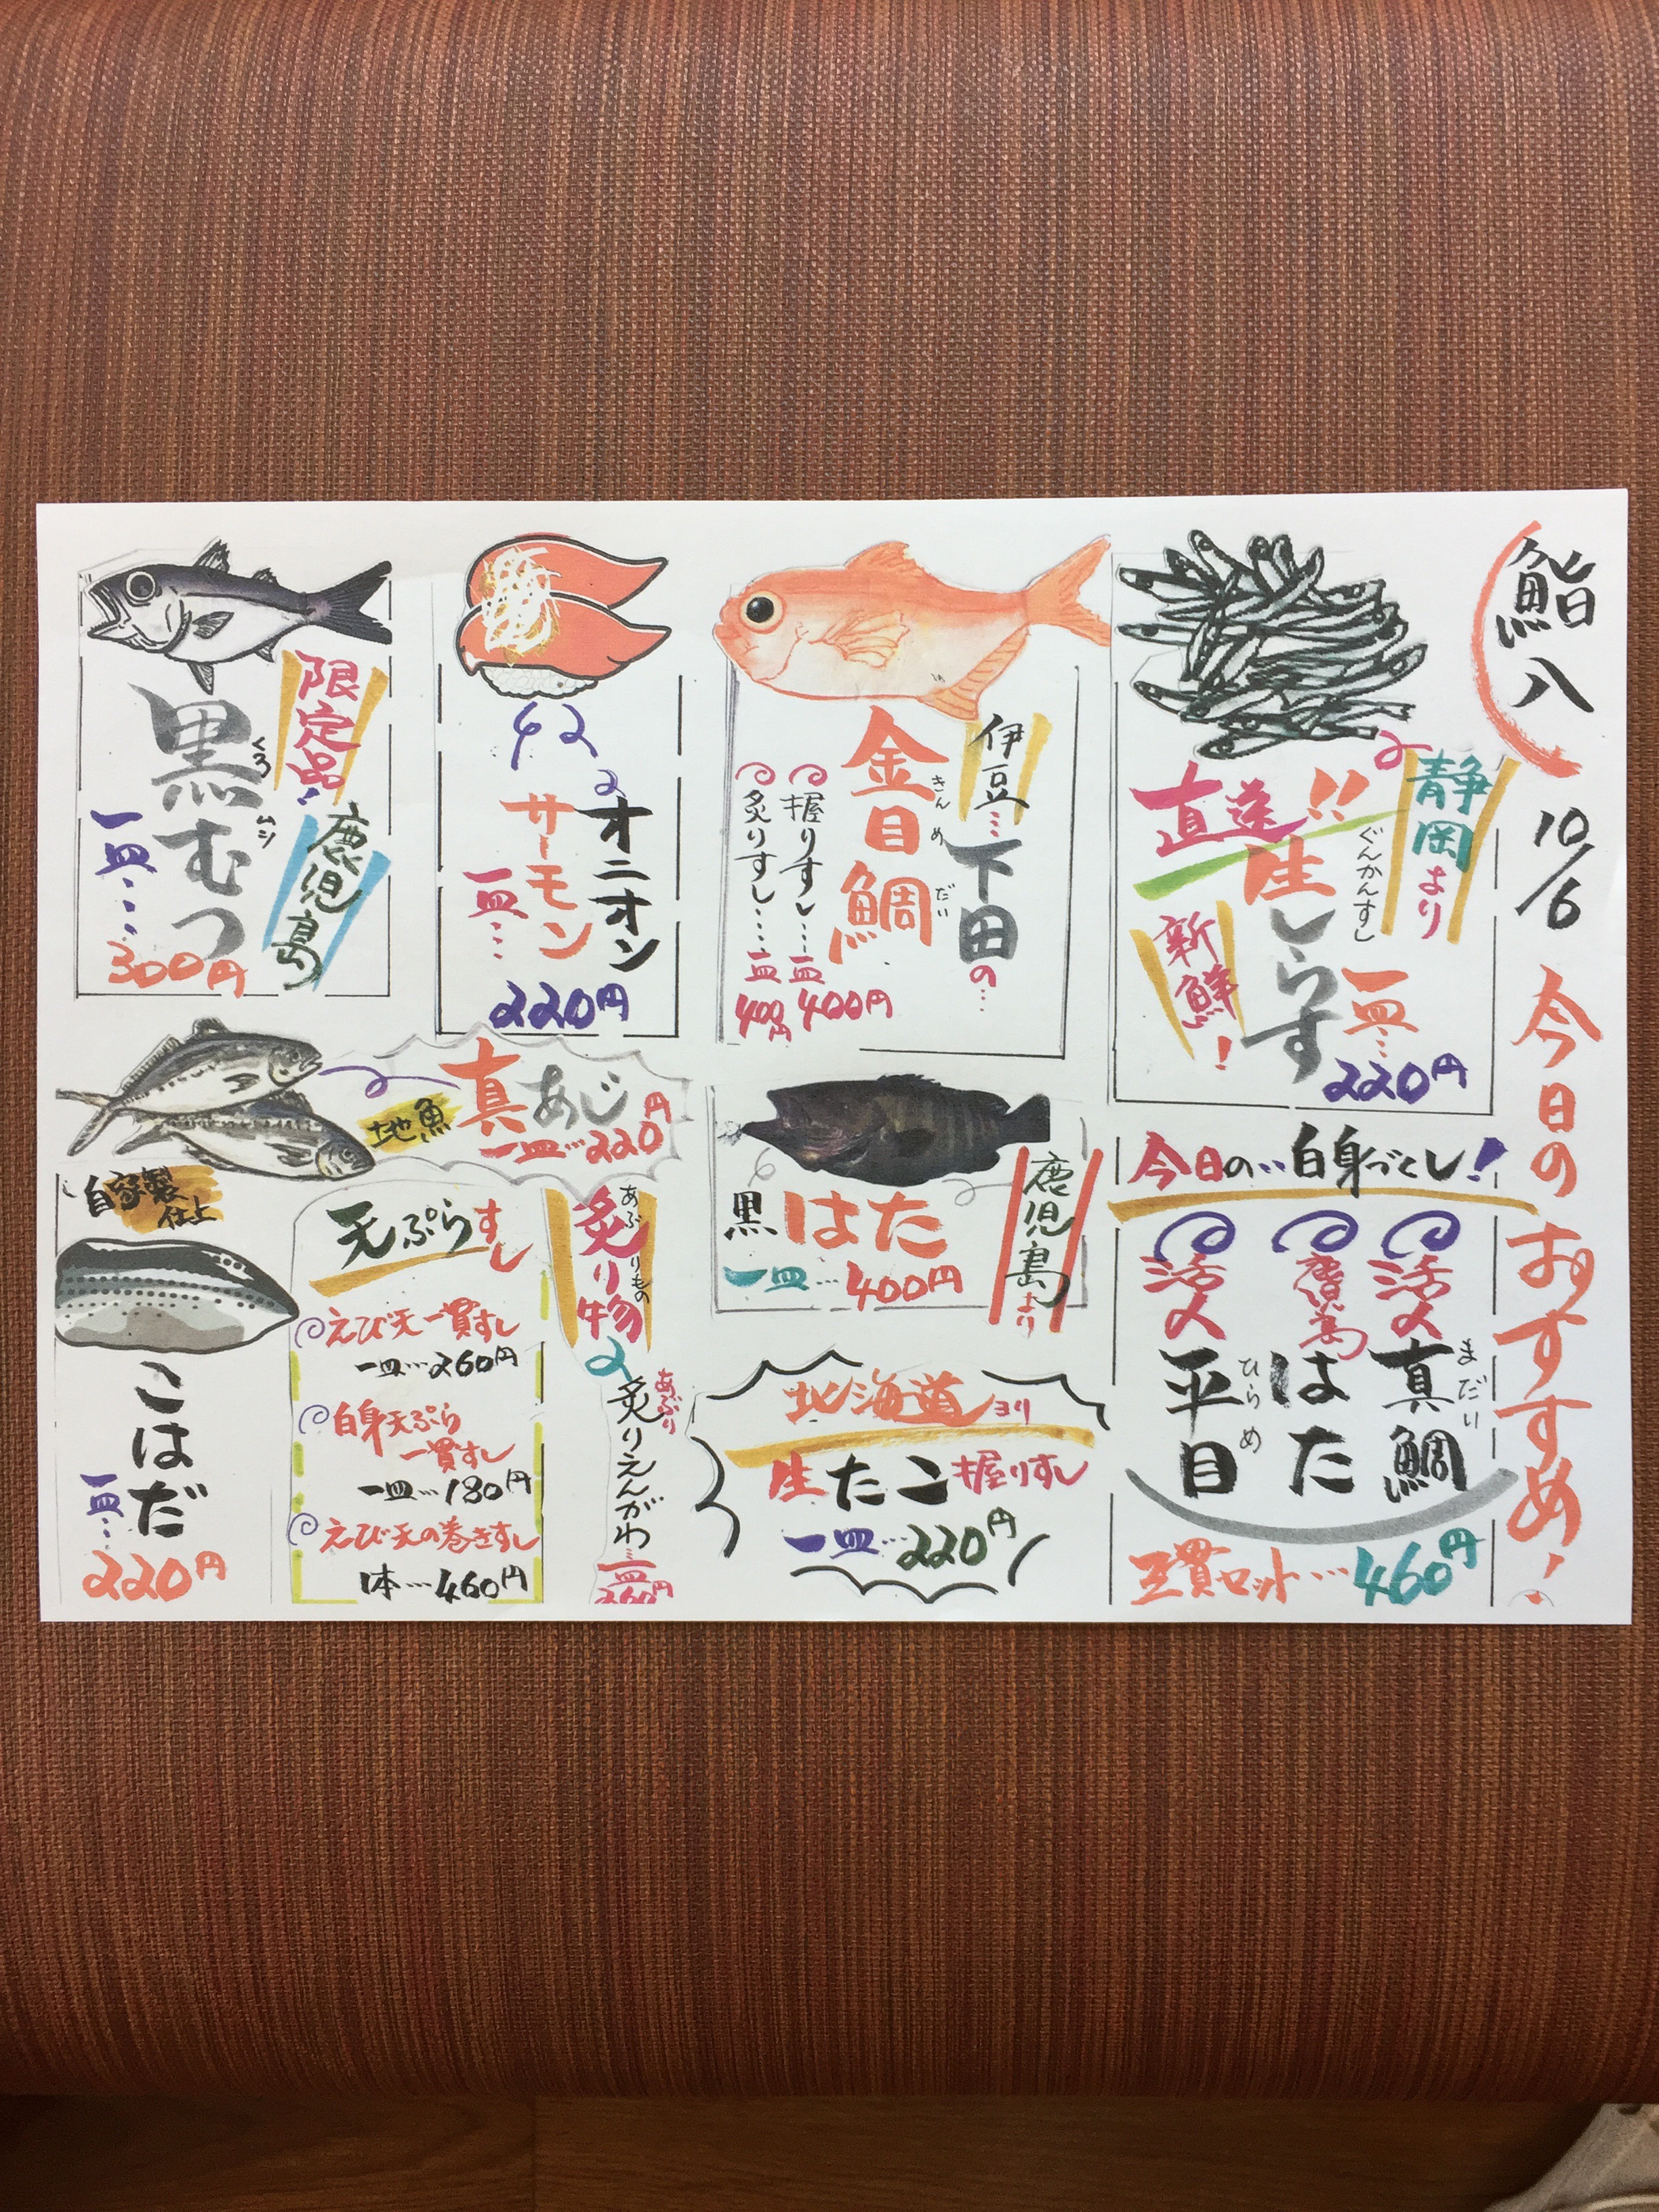 鮨八
10/6
今日のおすすめ!
静岡より
直送!!
ぐんかんすし
生しらす
新鮮!
一皿…
220円
伊豆…下田の…
金目鯛
きんめだい
握りすし…一皿400円
炙りすし…一皿400円
オニオン
サーモン
一皿…
220円
限定品!
鹿児島
黒むつ
くろムツ
一皿…
300円
今日の…白身づくし!
活〆
真鯛
まだい
鹿児島
はた
活〆
平目
ひらめ
三貫セット…460円
鹿児島より
黒はた
一皿…400円
北海道ヨリ
生たこ握りすし
一皿…220円
地魚
真あじ
一皿…220円
炙り物
あぶりもの
炙りえんがわ
あぶり
一皿
260円
天ぷらすし
えび天一貫すし
一皿…260円
白身天ぷら
一貫すし
一皿…180円
えび天の巻きすし
1本…460円
自家製
仕上
こはだ
一皿…
220円